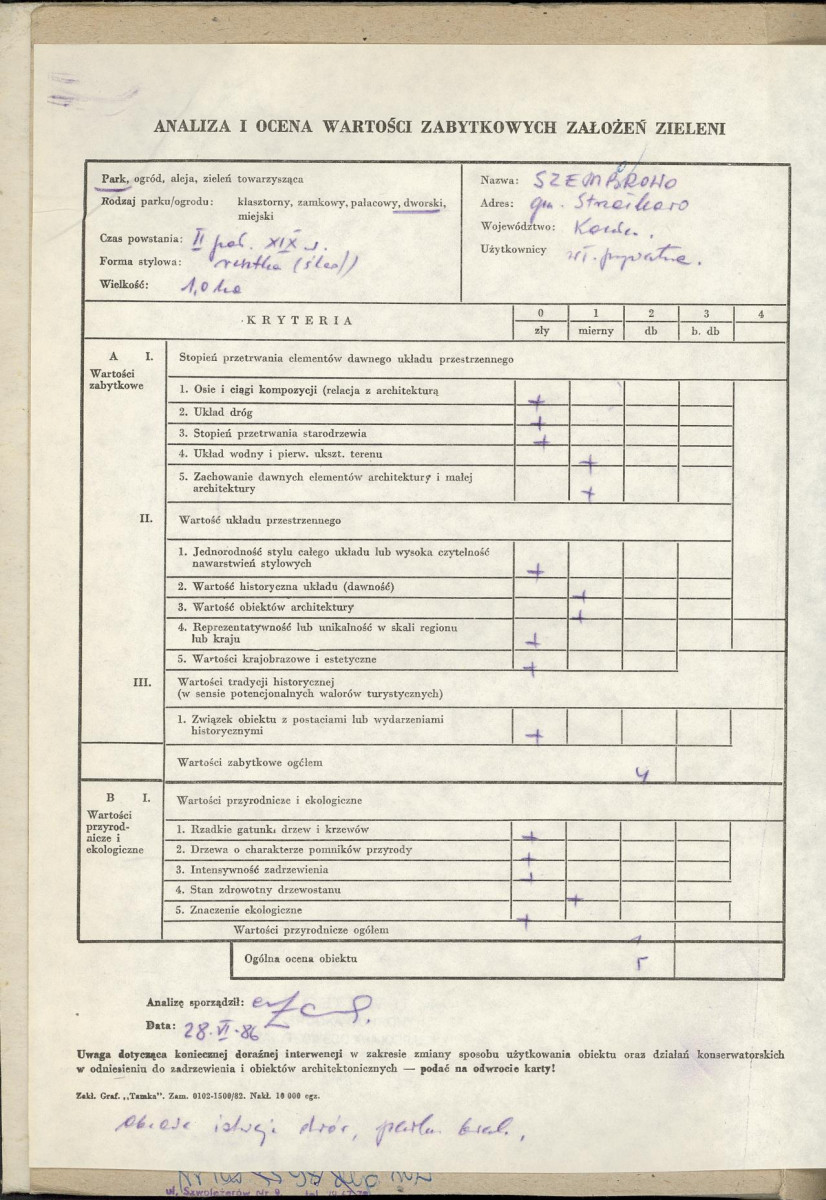 ANALIZA I OCENA WARTOŚCI ZABYTKOWYCH ZAŁOŻEŃ ZIELENI
Park, ogród, aleja, zieleń towarzysząca
Rodzaj parku/ogrodu: klasztorny, zamkowy, pałacowy, dworski,
miejski
Czas powstania: II poł. XIX w.
Forma stylowa: resztka (ślad)
Wielkość: 1,0 ha
Nazwa: SZEMBOROWO
Adres: gm. Strzałkowo
Województwo: Konin.
Użytkownicy wł. prywatna.
KRYTERIA
0 1 2 3 4
zły mierny db b. db
A I. Stopień przetrwania elementów dawnego układu przestrzennego
Wartości
zabytkowe
1. Osie i ciągi kompozycji (relacja z architekturą +
2. Układ dróg +
3. Stopień przetrwania starodrzewia +
4. Układ wodny i pierw. ukszt. terenu +
5. Zachowanie dawnych elementów architektury i małej
architektury +
II. Wartość układu przestrzennego
1. Jednorodność stylu całego układu lub wysoka czytelność
nawarstwień stylowych +
2. Wartość historyczna układu (dawność) +
3. Wartość obiektów architektury +
4. Reprezentatywność lub unikalność w skali regionu
lub kraju +
5. Wartości krajobrazowe i estetyczne +
III. Wartości tradycji historycznej
(w sensie potencjonalnych walorów turystycznych)
1. Związek obiektu z postaciami lub wydarzeniami
historycznymi +
Wartości zabytkowe ogółem 4
B I. Wartości przyrodnicze i ekologiczne
Wartości
przyrod-
nicze i
ekologiczne
1. Rzadkie gatunki drzew i krzewów +
2. Drzewa o charakterze pomników przyrody +
3. Intensywność zadrzewienia +
4. Stan zdrowotny drzewostanu +
5. Znaczenie ekologiczne +
Wartości przyrodnicze ogółem 1
Ogólna ocena obiektu 5
Analizę sporządził:
Data: 28.VI.86
Uwaga dotycząca koniecznej doraźnej interwencji w zakresie zmiany sposobu użytkowania obiektu oraz działań konserwatorskich
w odniesieniu do zadrzewienia i obiektów architektonicznych — podać na odwrocie karty!
Zakł. Graf. „Tamka”. Zam. 0102-1500/82. Nakł. 10 000 egz.
istnieje dwór,
ul. Szwoleżerów Nr 9